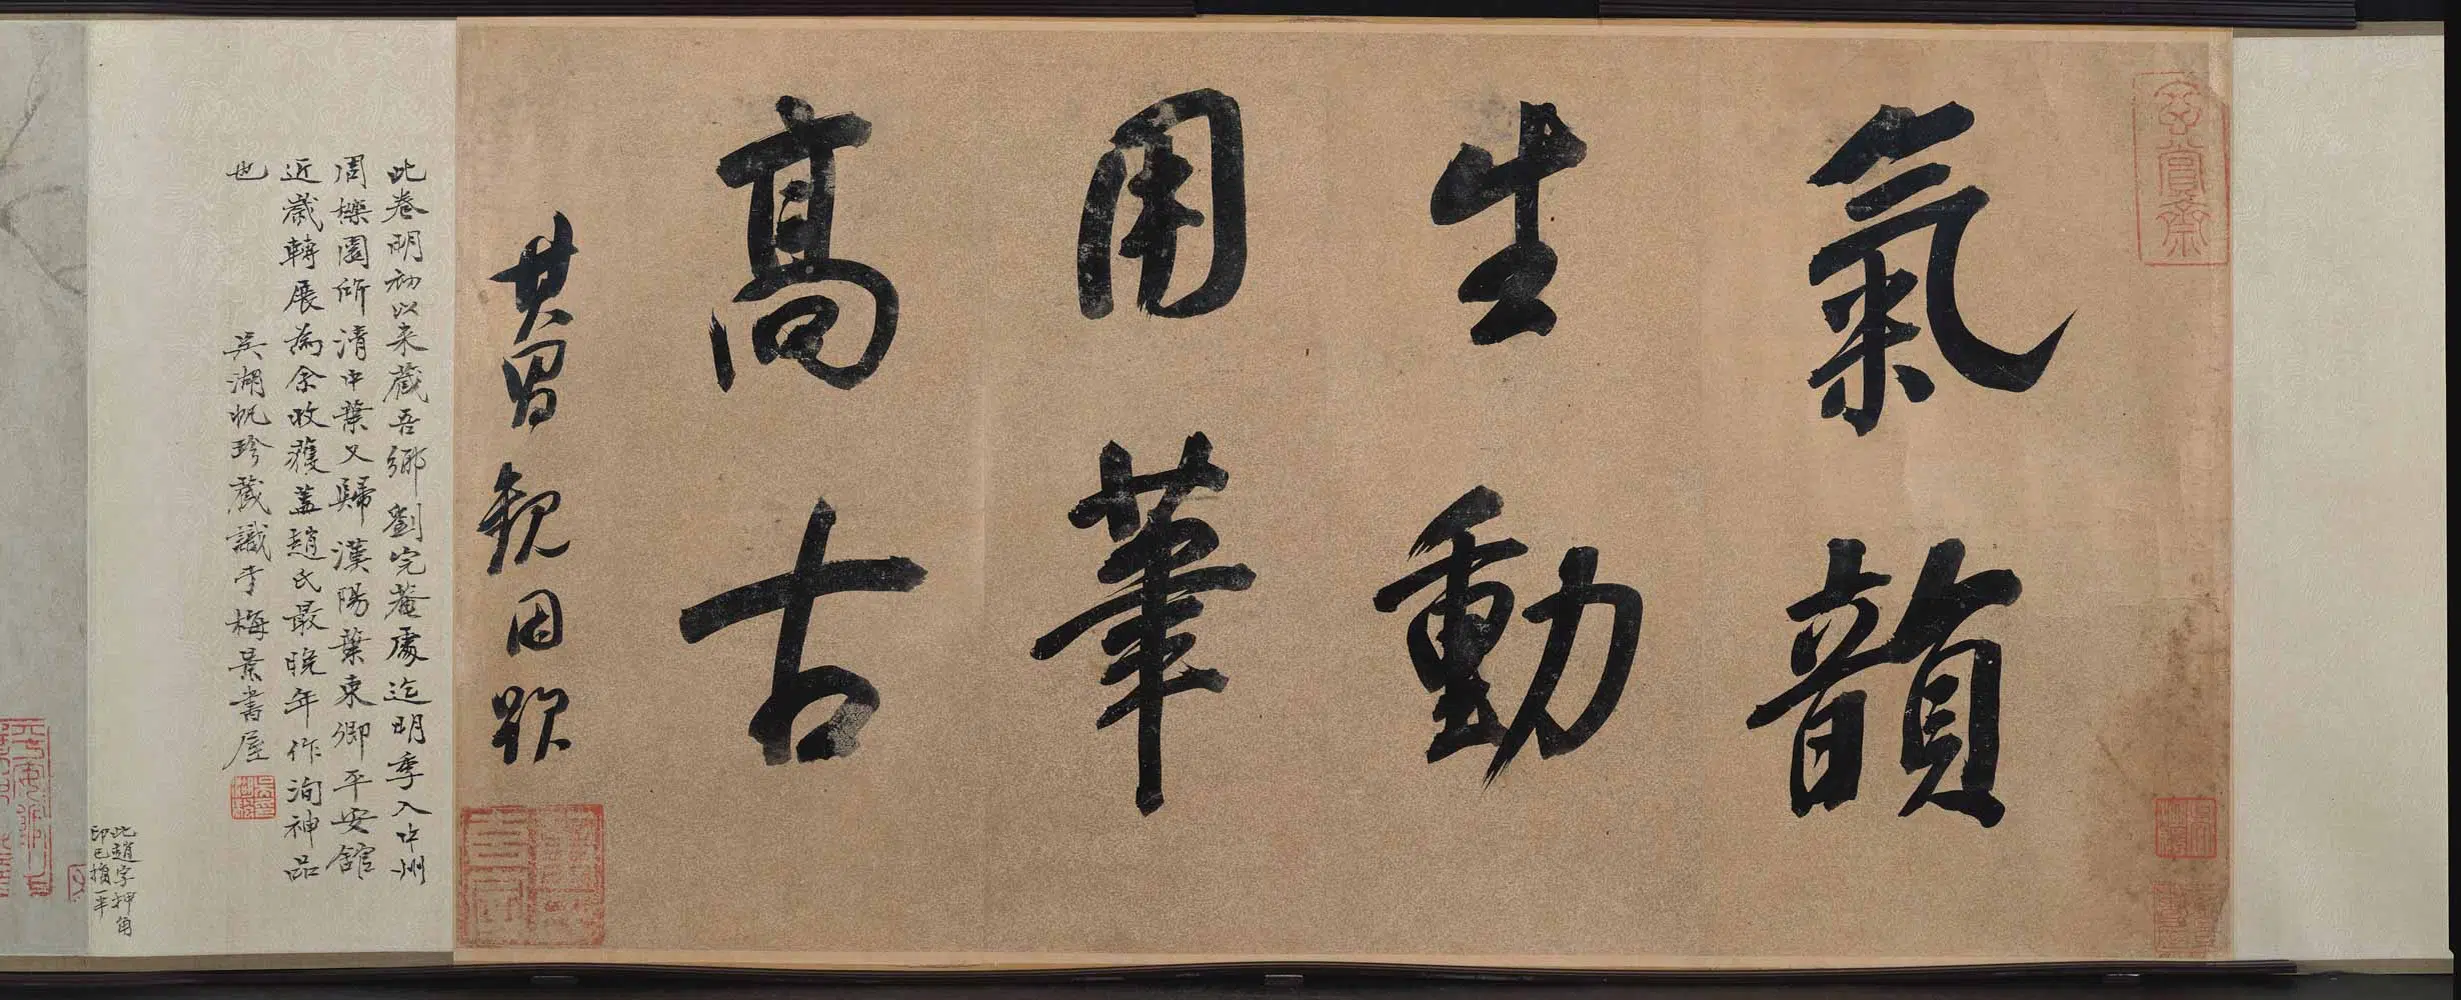 玄賞齋
氣韻
生動
用筆
高古
其昌觀因題
此卷明初以来藏吾鄉劉完菴處迄明季入中州
周櫟園所清中葉又歸漢陽葉東卿平安館
近歲轉展為余收獲蓋趙氏最晚年作洵神品
也
吳湖帆珍藏識于梅景書屋
此趙字押角
印已損一半